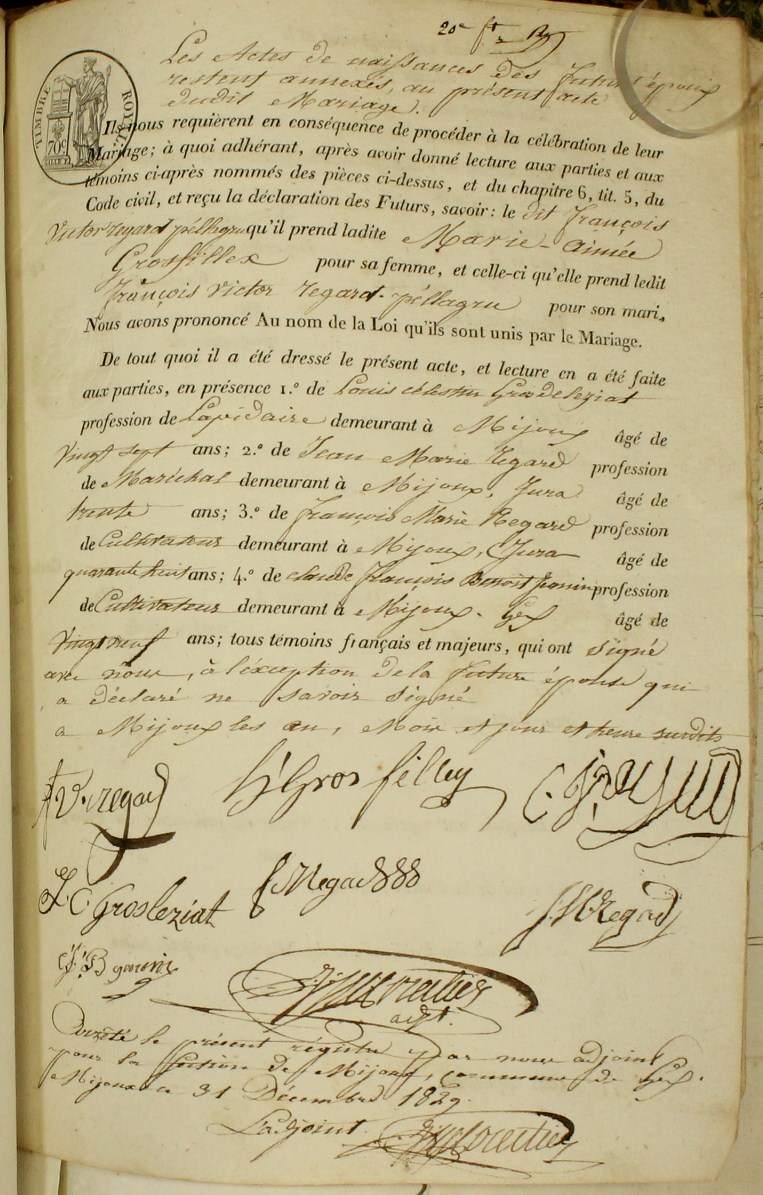 20e ft
Les Actes de naissances des futurs époux
restent annexés, au présent acte
dudit Mariage).
TIMBRE ROYAL
70c
Ils nous requièrent en conséquence de procéder à la célébration de leur
Mariage; à quoi adhérant, après avoir donné lecture aux parties et aux
témoins ci-après nommés des pièces ci-dessus, et du chapitre 6, tit. 5, du
Code civil, et reçu la déclaration des Futurs, savoir: le dit françois
Victor regard péllagru qu'il prend ladite Marie-aimée
Grosfillex pour sa femme, et celle-ci qu'elle prend ledit
françois victor regard-péllagru pour son mari,
Nous avons prononcé Au nom de la Loi qu'ils sont unis par le Mariage.
De tout quoi il a été dressé le présent acte, et lecture en a été faite
aux parties, en présence 1.º de Louis célestin Grosleziat
profession de Lapidaire demeurant à Mijoux âgé de
vingt sept ans; 2.º de Jean Marie Regard profession
de Maréchal demeurant à Mijoux, Jura âgé de
trente ans; 3.º de françois Marie Regard profession
de Cultivateur demeurant à Mijoux, Jura âgé de
quarante huit ans; 4.º de claude françois Benoit profession
de Cultivateur demeurant à Mijoux. Gex âgé de
Vingt neuf ans; tous témoins français et majeurs, qui ont signé
avec nous, à l'éxception de la future épouse qui
a déclaré ne savoir signé
a Mijoux les an, Mois et jour et heure susdits
f V. regard
L. C. Grosleziat
f M regard
J. M. Regard
adjt.
Arrêté le présent régistre par nous adjoint
pour la section de Mijoux, commune de Gex.
Mijoux ce 31 Décembre 1829.
L'adjoint